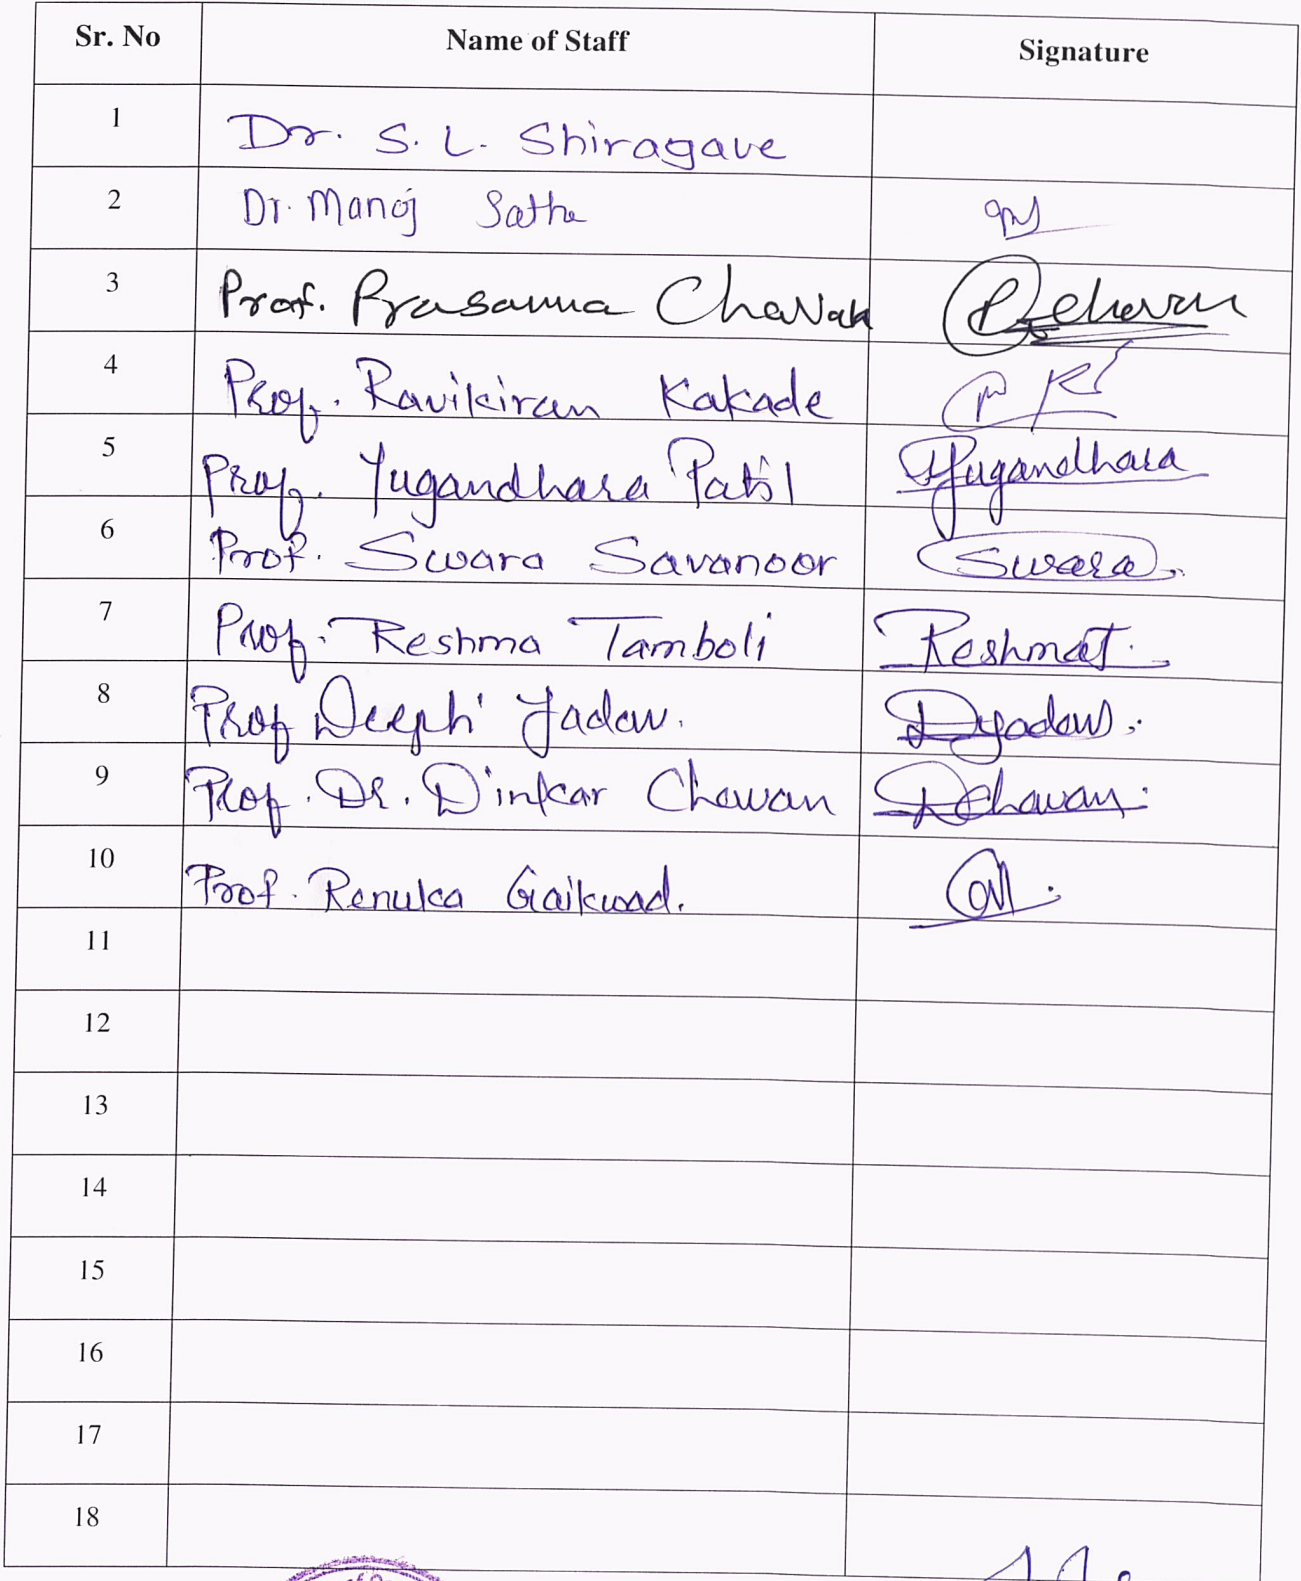 Sr. No Name of Staff Signature
1 Dr. S. L. Shiragave
2 Dr. Manoj Sathe
3 Prof. Prasanna Chavan P.Chavan
4 Prof. Ravikiran Kakade
5 Prof. Yugandhara Patil Yugandhara
6 Prof. Swara Savanoor Swara
7 Prof. Reshma Tamboli ReshmaT.
8 Prof Deepti Yadav. DYadav.
9 Prof. Dr. Dinkar Chavan DChavan
10 Prof. Renuka Gaikwad.
11
12
13
14
15
16
17
18